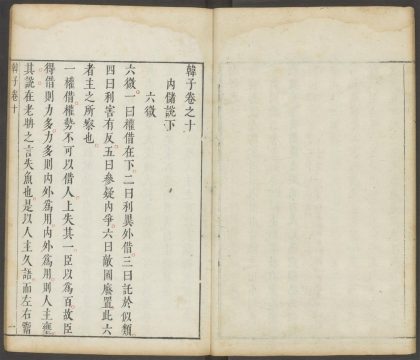 韓子卷之十
內儲說下
六微
六微一曰權借在下二曰利異外借三曰託於似類
四曰利害有反五曰參疑內爭六曰敵國廢置此六
者主之所察也
一權借權勢不可以借人上失其一臣以爲百故臣
得借則力多力多則內外爲用內外爲用則人主壅
其說在老聃之言失魚也是以人主久語而左右鬻
韓子卷十
一